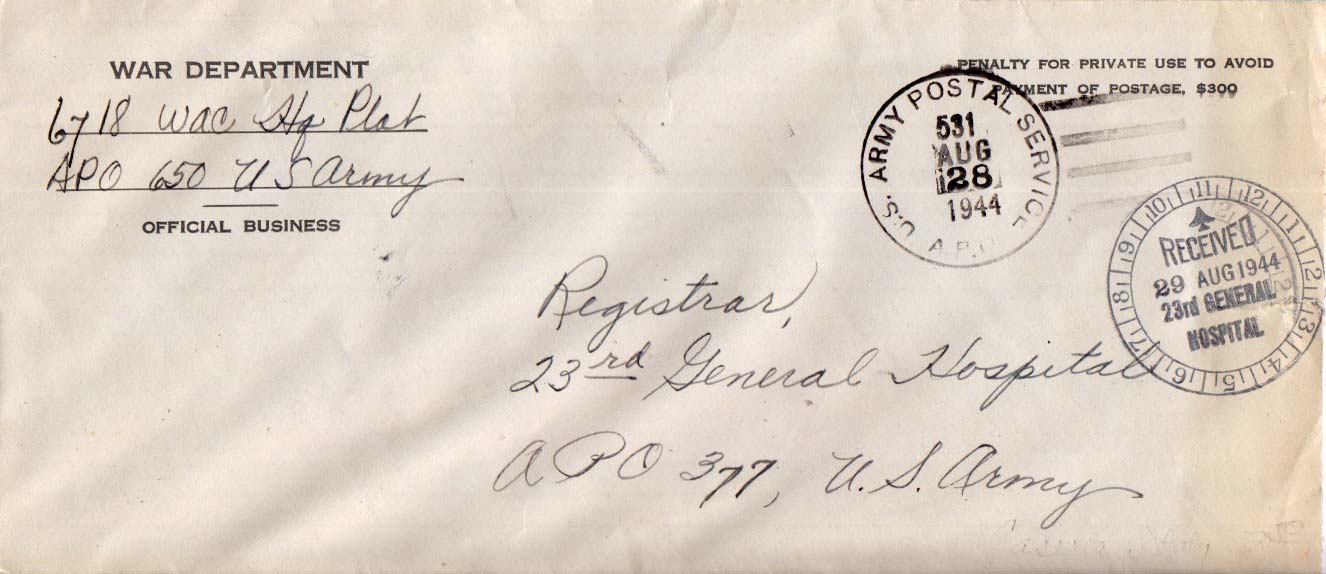 WAR DEPARTMENT
6718 WAC Hq Plat
APO 650 U S Army
OFFICIAL BUSINESS
PENALTY FOR PRIVATE USE TO AVOID
PAYMENT OF POSTAGE, $300
U.S. ARMY POSTAL SERVICE
A.P.O.
531
AUG
28
1944
12 1 2 3 4 5 6 7 8 9 10 11
RECEIVED
29 AUG 1944
23rd GENERAL
HOSPITAL
Registrar,
23rd General Hospital
APO 377, U.S. Army
Italy